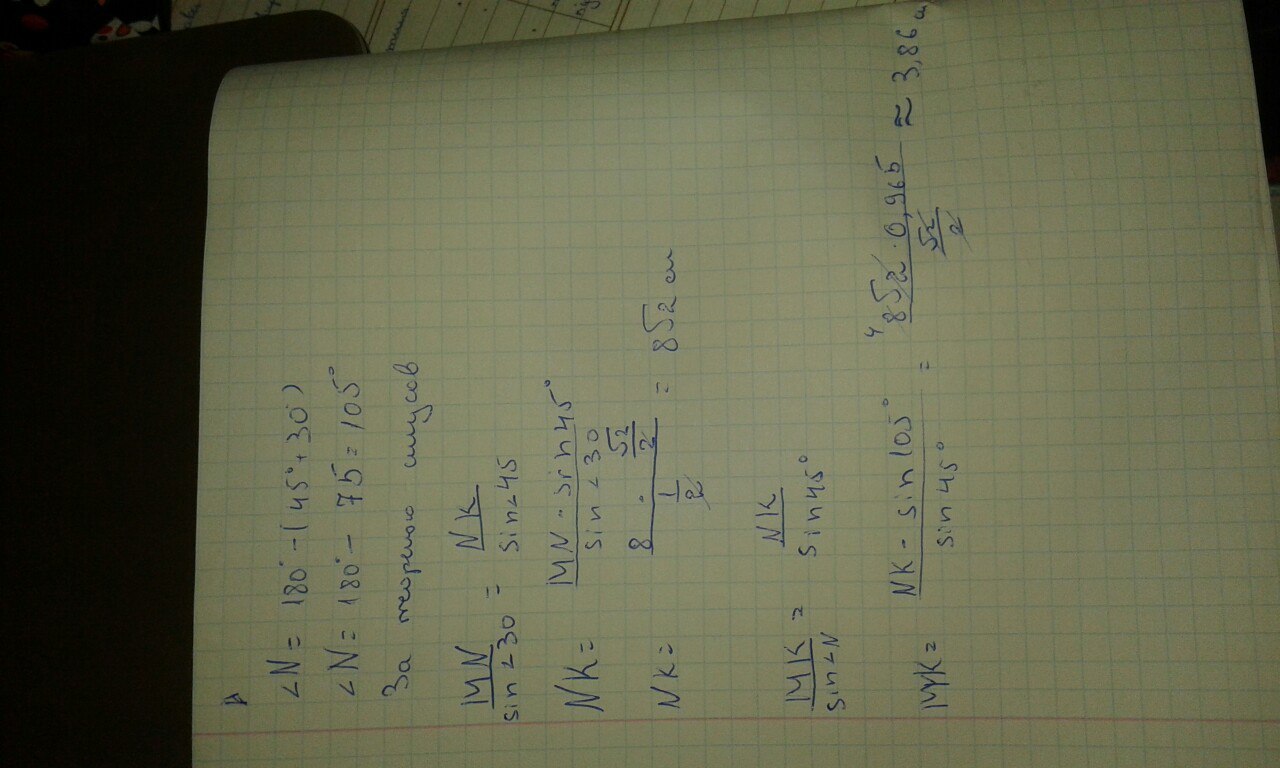 ∠N = 180° - (45° + 30°)
∠N = 180° - 75 = 105°
За теоремою синусов
MN / sin∠30 = NK / sin∠45
NK = MN · sin45° / sin∠30
NK = 8 · √2/2 / 1/2 = 8√2 см
MK / sin∠N = NK / sin45°
MK = NK · sin105° / sin45° = 4 8√2 · 0,965 / √2/2 ≈ 3,86 см